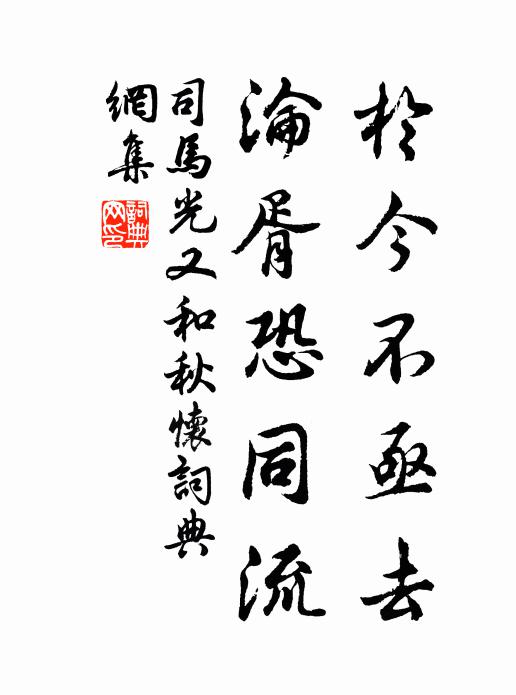 於今不亟去
淪胥恐同流
司馬光又和秋懷詞典
網集
詞典網印